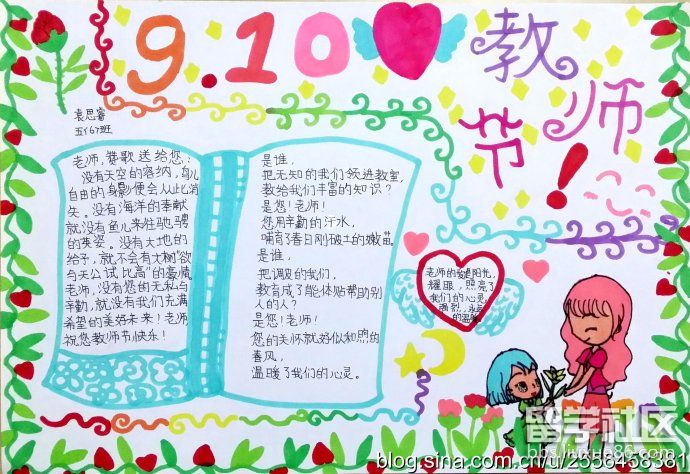 9.10
教师
节!
袁思睿
五(6)班
老师,赞歌送给您:
没有天空的容纳,鸟儿
自由的身影便会从此消
失。没有海洋的奉献
就没有鱼儿来往驰骋
的英姿。没有大地的
给予,就不会有大树“欲
与天公试比高”的豪情。
老师,没有您的无私与
辛勤,就没有我们充满
希望的美好未来!老师
祝您教师节快乐!
是谁,
把无知的我们领进教室,
教给我们丰富的知识?
是您!老师!
您用辛勤的汗水,
哺育了春日刚破土的嫩苗。
是谁,
把调皮的我们,
教育成了能体贴帮助别
人的人?
是您!老师!
您的关怀就好似和煦的
春风,
温暖了我们的心灵。
老师的爱是阳光,
耀眼,照亮了
我们的心灵,
强烈,永远
的温暖
留学社区
bbs.liuxue86.com
blog.sina.com.cn/u/2556458381